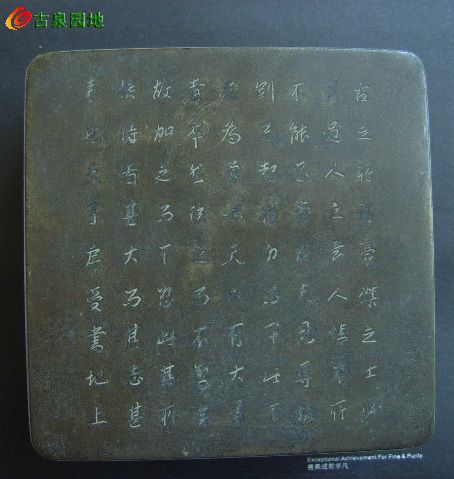 古泉园地
古之所謂豪傑之士必
有過人之節人情有所
不能忍者匹夫見辱拔
劍而起挺身而鬥此不
足為勇也天下有大勇
者卒然臨之而不驚無
故加之而不怒此其所
挾持者甚大而其志甚
遠也夫子房受書圯上
Exceptional Achievement For Fine & Purity
美成就非凡